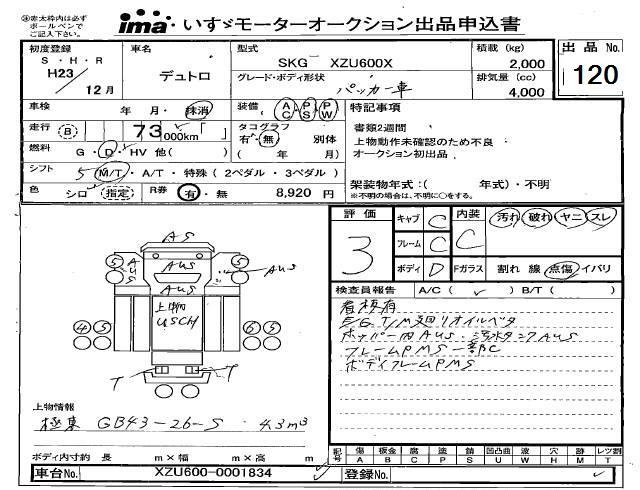 ㊟赤太枠内は必ず
ボールペンで
ご記入下さい。
ima いすゞモーターオークション出品申込書
初度登録 車名 型式 積載 (kg) 出品 No.
S・H・R
H23 12月 デュトロ SKG XZU600X 2,000
グレード・ボディ形状 排気量 (cc)
パッカー車 4,000
120
車検 年 月・抹消 装備 AC PS PW 特記事項
走行 B 73,000km「 」 タコグラフ 有・無 別体 ( 年 月)
書類2週間
上物動作未確認のため不良
オークション初出品
燃料 G・D・HV 他( )
シフト 5 M/T・A/T・特殊(2ペダル・3ペダル)
架装物年式:( 年式)・不明
※不明の場合は、不明に○をする。
色 シロ 指定 R券 有・無 8,920 円
評価 3
キャブ C 内装 C 汚れ 破れ ヤニ スレ
フレーム C
ボディ D Fガラス 割れ 線 点傷 イバリ
検査員報告 A/C( ✓ ) B/T( )
看板有
E/G T/M廻りオイルベタ
ホッパー内AUS・汚水タンクAUS
フレームPMS一部C
ボディフレームPMS
AS
5 AUS AUS 5 AUS
AUS
上物
USCH
4 5 6 5
T T
上物情報
極東 GB43-26-S 4.3m³
ボディ内寸約 長 m×幅 m×高 m
記号 傷 板金 腐 塗 錆 凹凸曲 波 穴 跡 レンズ割
A B C P S U W H M T
車台No. XZU600-0001834 登録No.